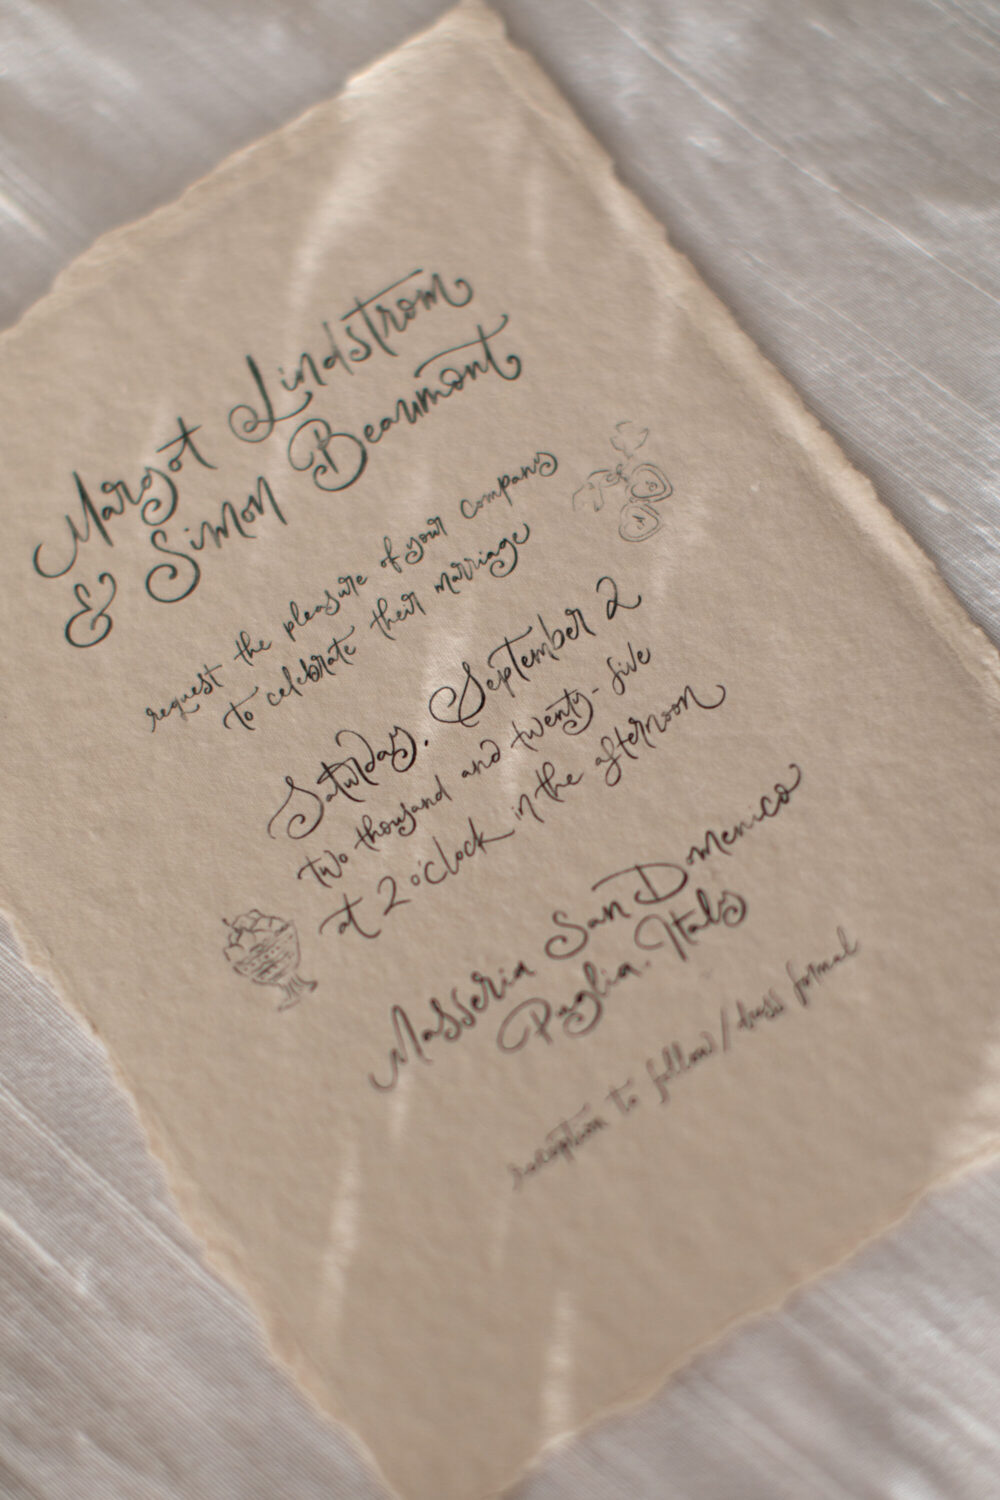 Margot Lindstrom
& Simon Beaumont
request the pleasure of your company
to celebrate their marriage
Saturday, September 2
two thousand and twenty-five
at 2 o'clock in the afternoon
Masseria San Domenico
Puglia, Italy
reception to follow / dress formal